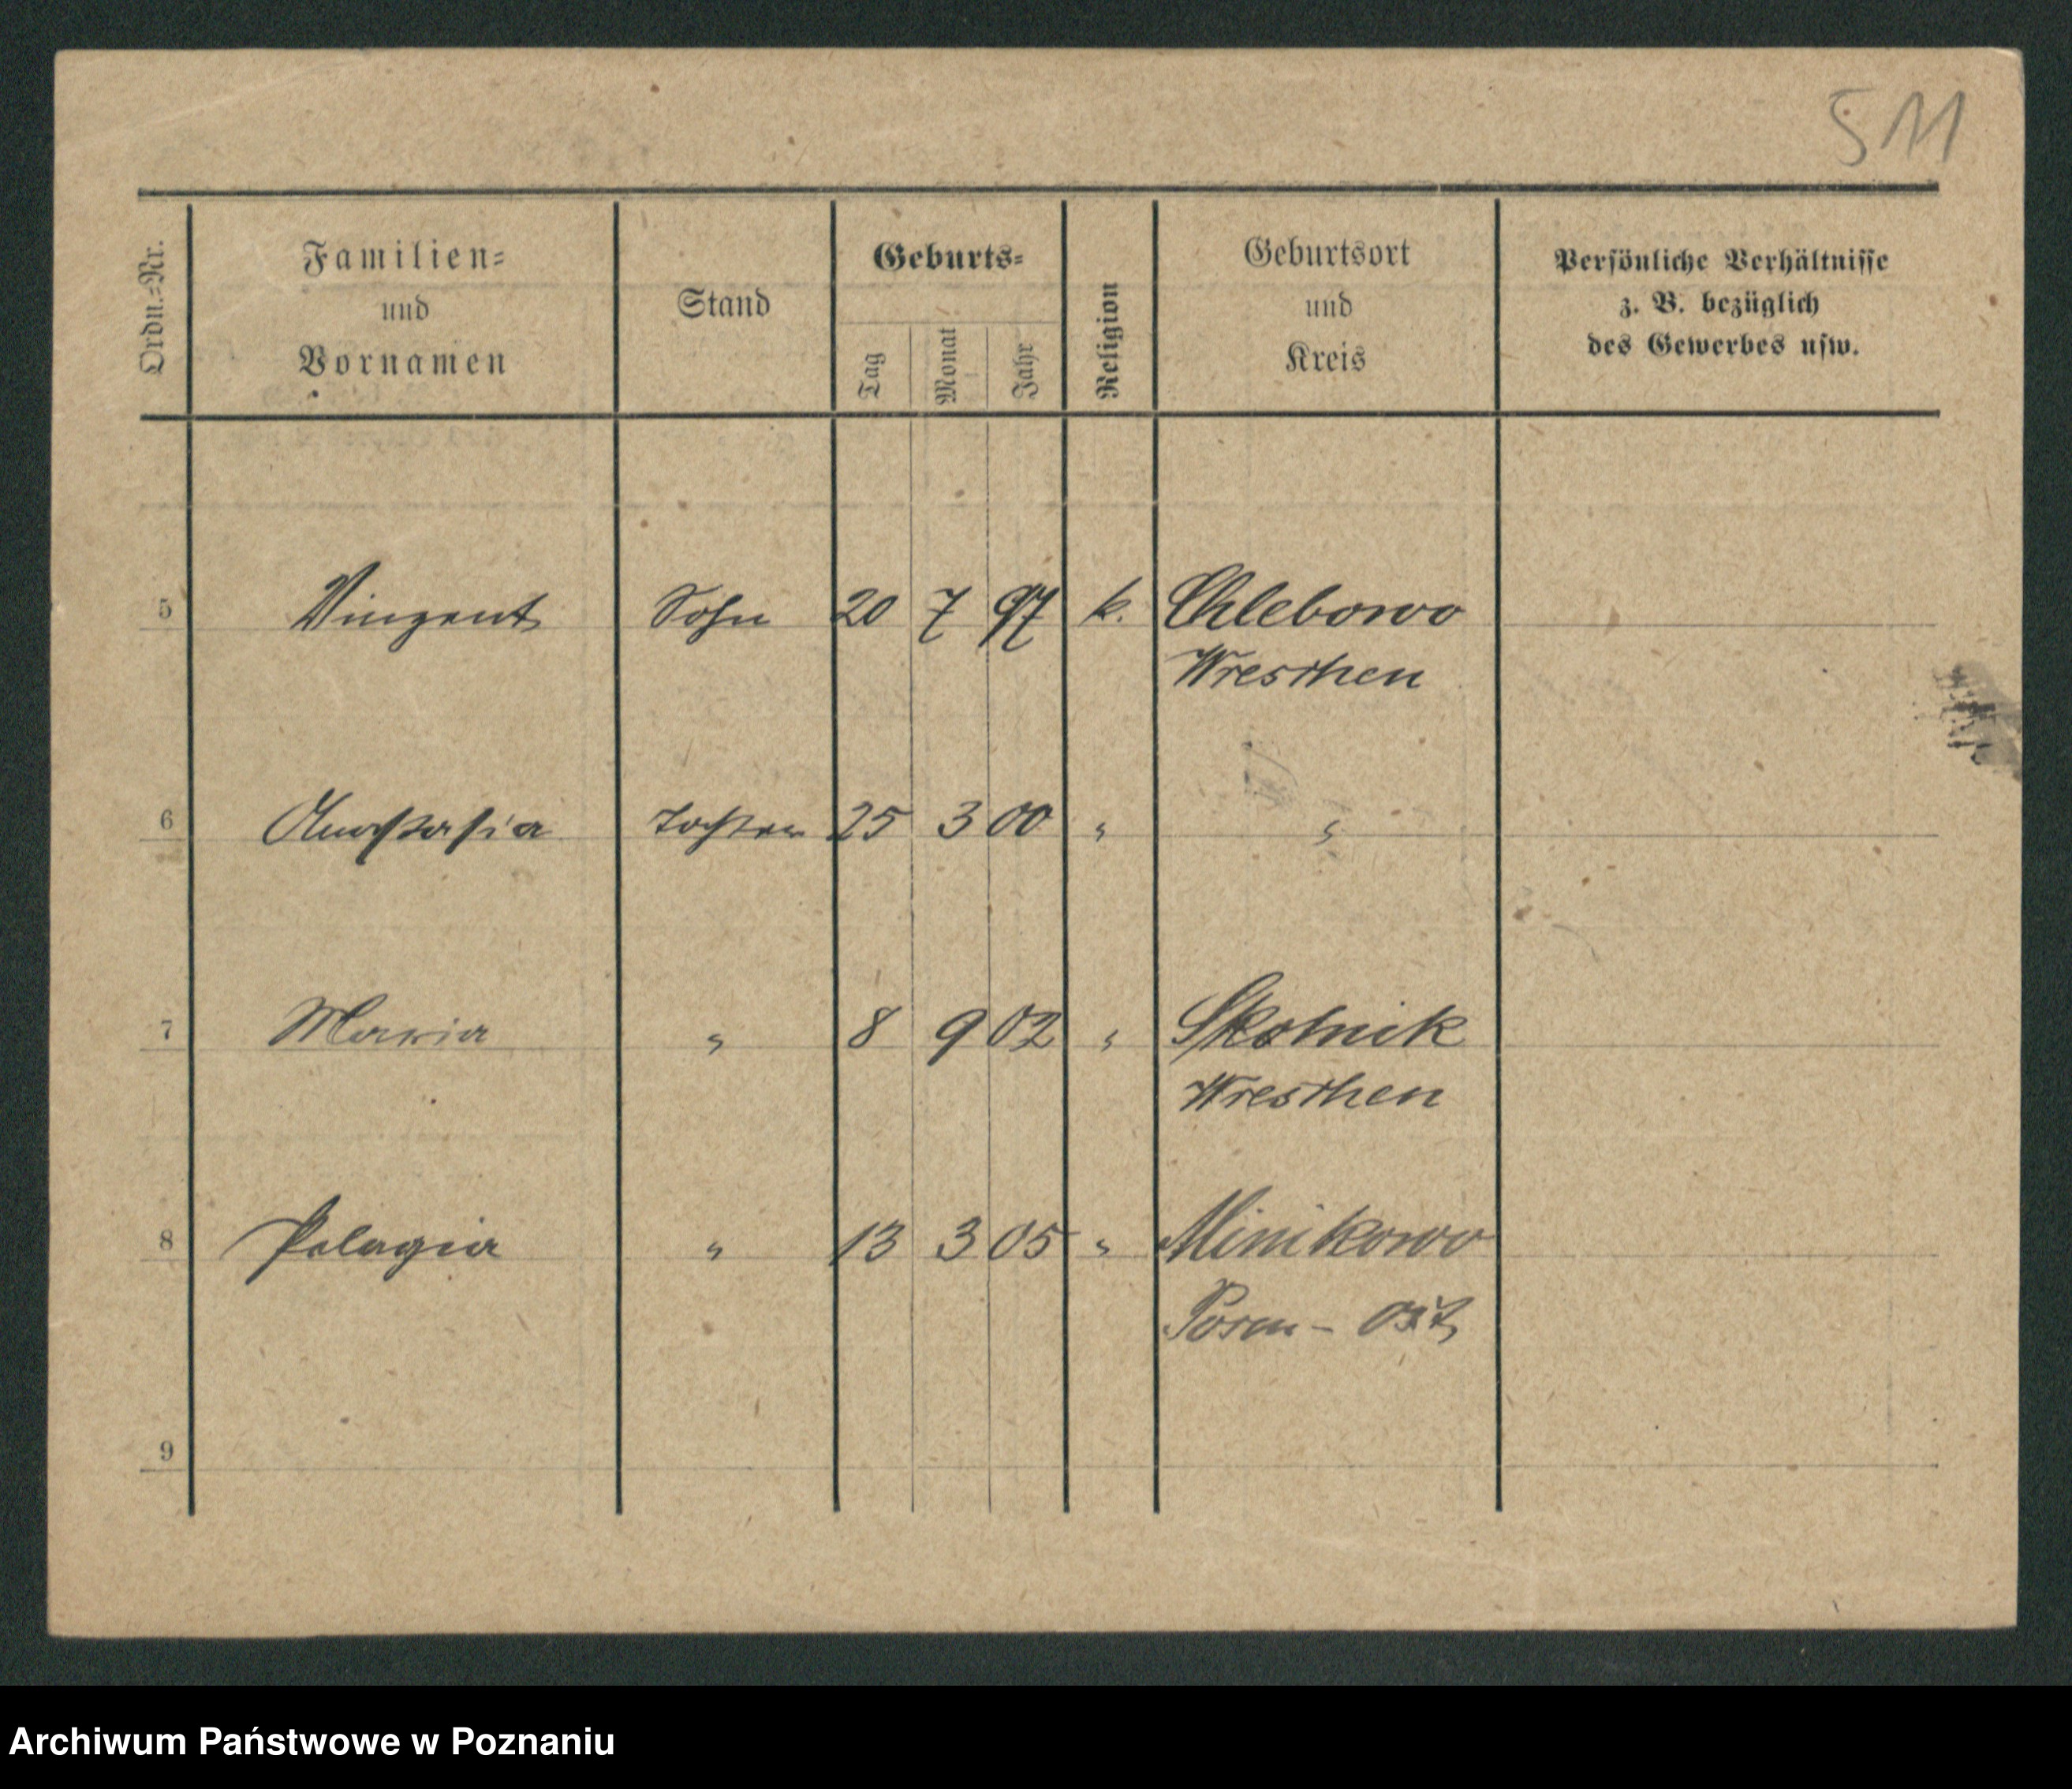 511
Ordn.=Nr.
Familien=
und
Vornamen
Stand
Geburts=
Tag
Monat
Jahr
Religion
Geburtsort
und
Kreis
Persönliche Verhältnisse
z. B. bezüglich
des Gewerbes usw.
5 Vinzent Sohn 20 7 97 k. Chlebowo
Wreschen
6 Anastasia Tochter 25 3 00 " "
7 Maria " 8 9 02 " Skotnik
Wreschen
8 Pelagia " 13 3 05 " Minikowo
Posen - Ost
9
Archiwum Państwowe w Poznaniu